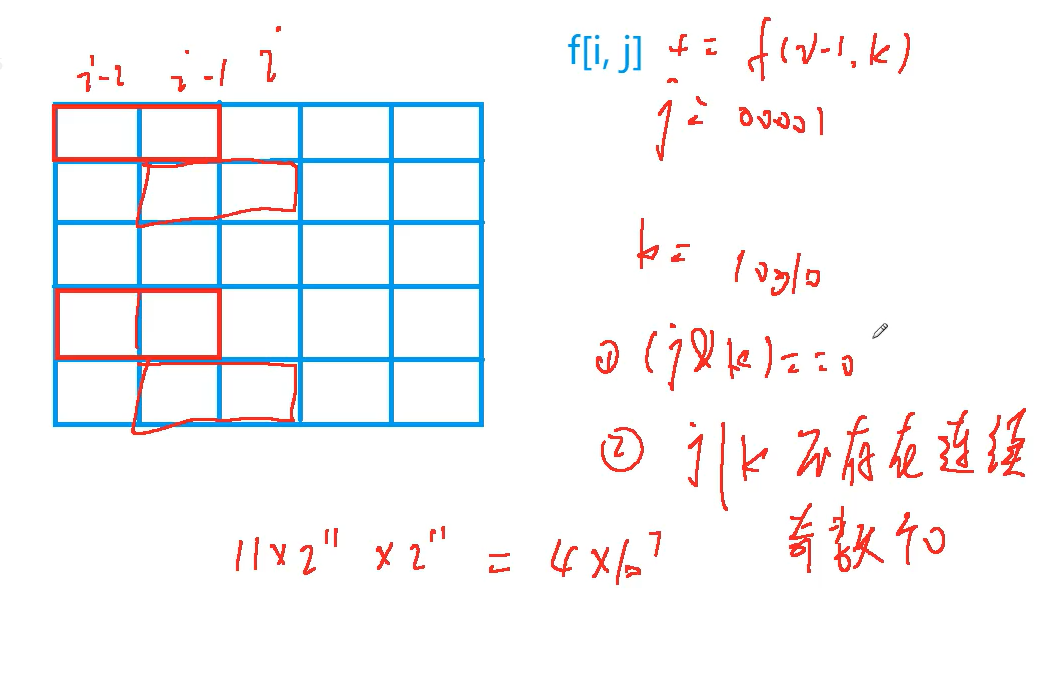 i-2 i-1 i
f[i, j] += f(i-1, k)
j = 00001
k = 10010
① (j & k) == 0
② j | k 不存在连续
奇数个0
11 × 2^11 × 2^11 = 4 × 10^7